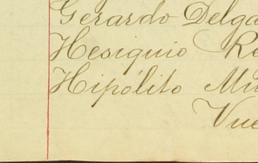 Gerardo Delga
Hesiquio Ro
Hipólito Mu
Vue